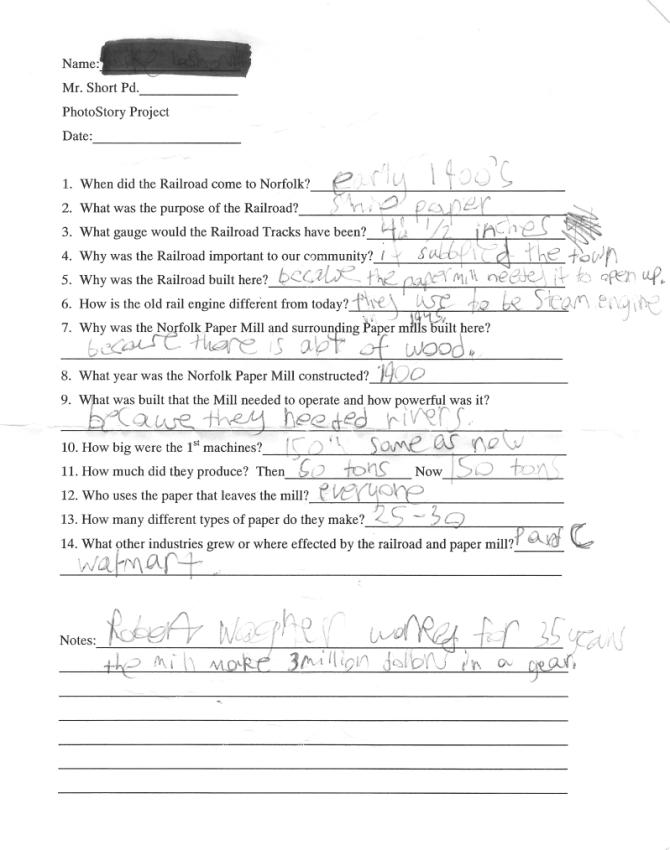 Name:
Mr. Short Pd.
PhotoStory Project
Date:
1. When did the Railroad come to Norfolk? early 1900's
2. What was the purpose of the Railroad? Ship paper
3. What gauge would the Railroad Tracks have been? 4' 1/2 inches
4. Why was the Railroad important to our community? it the town
5. Why was the Railroad built here? because the papermill needed it to open up.
6. How is the old rail engine different from today? they use to be Steam engine
1945
7. Why was the Norfolk Paper Mill and surrounding Paper mills built here?
because there is of wood.
8. What year was the Norfolk Paper Mill constructed? 1900
9. What was built that the Mill needed to operate and how powerful was it?
because they needed rivers.
10. How big were the 1st machines? 150" same as now
11. How much did they produce? Then 60 tons Now 150 tons
12. Who uses the paper that leaves the mill? everyone
13. How many different types of paper do they make? 25-30
14. What other industries grew or where effected by the railroad and paper mill? C
walmart
Notes: Robert worked for 35 years
the mill make 3million in a year.